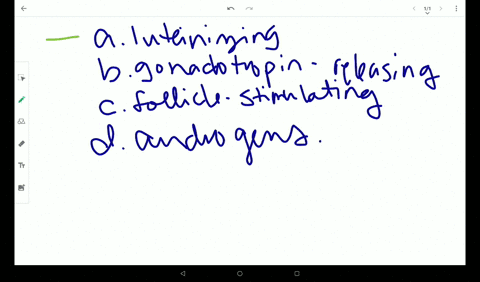 1/1
a. luteinizing
b. gonadotropin - releasing
c. follicle - stimulating
d. androgens.
Tr